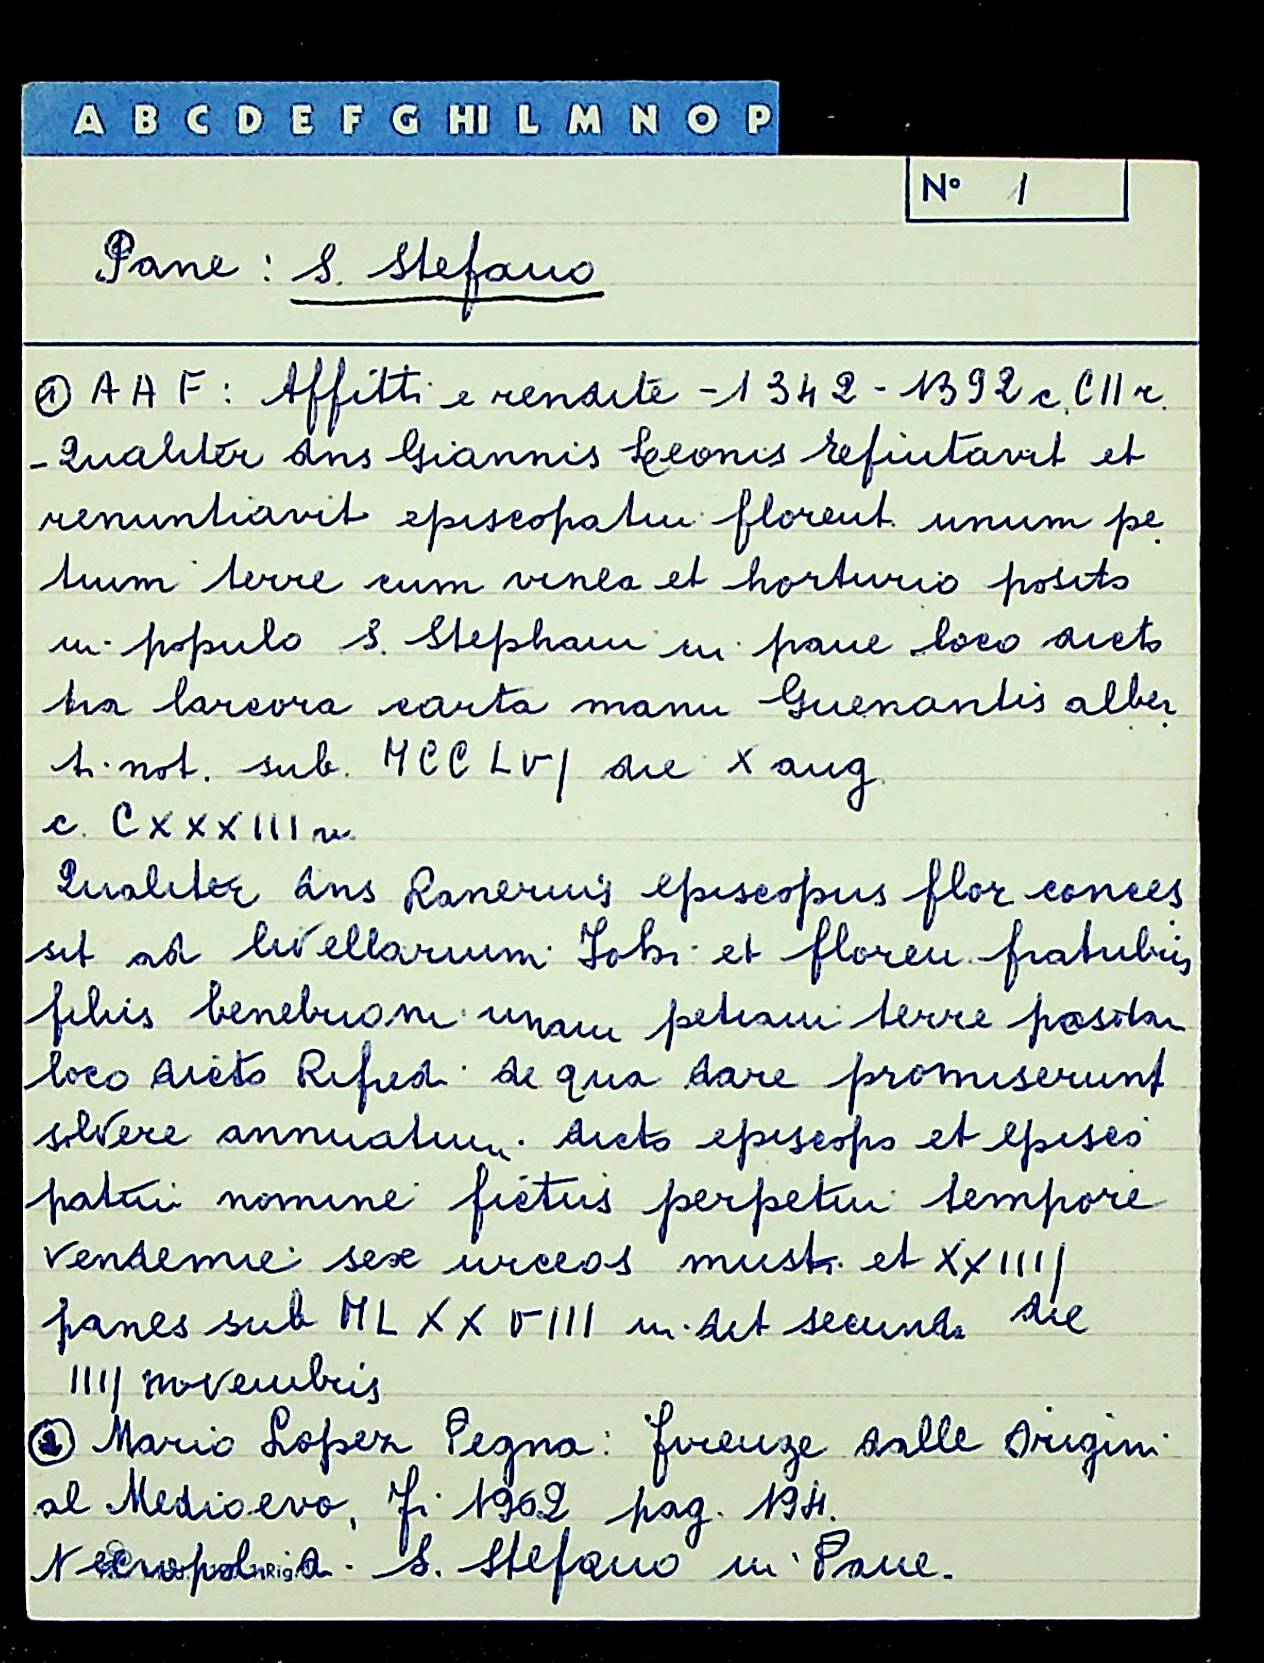 A B C D E F G HI L M N O P
N° 1
Pane : S. Stefano
① A A F : Affitti e rendite - 1342 - 1392 c. CII r.
- Qualiter dns Giannis Leonis refiutavit et
renuntiavit episcopatui florent. unum pe
tium terre cum vinea et horturio posito
in populo S. Stephani in pane loco dicto
tra larcora carta manu Guenantis alber
ti not. sub. MCCLVI die X aug.
c. CXXXIII r.
Qualiter dns Ranerius episcopus flor conces
sit ad livellarium et floren. fratribus
filiis benebruoni unam petiam terre positam
loco dicto Rifredi de qua dare promiserunt
solvere annuatim dicto episcopo et episco
patui nomine fictus perpetui tempore
vendemie sex urceos musti et XXIIII
panes sub MLXXVIII in.dit secunda die
IIII novembris
② Mario Lopez Pegna: Firenze dalle Origini
al Medioevo, Fi 1962 pag. 194.
Necropoli di S. Stefano in Pane.